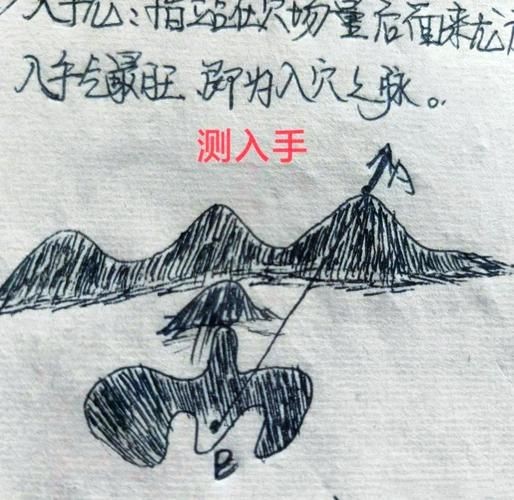 入手龙：指站在穴场量后面来龙
入手气最旺，即为入穴之脉。
测入手
B